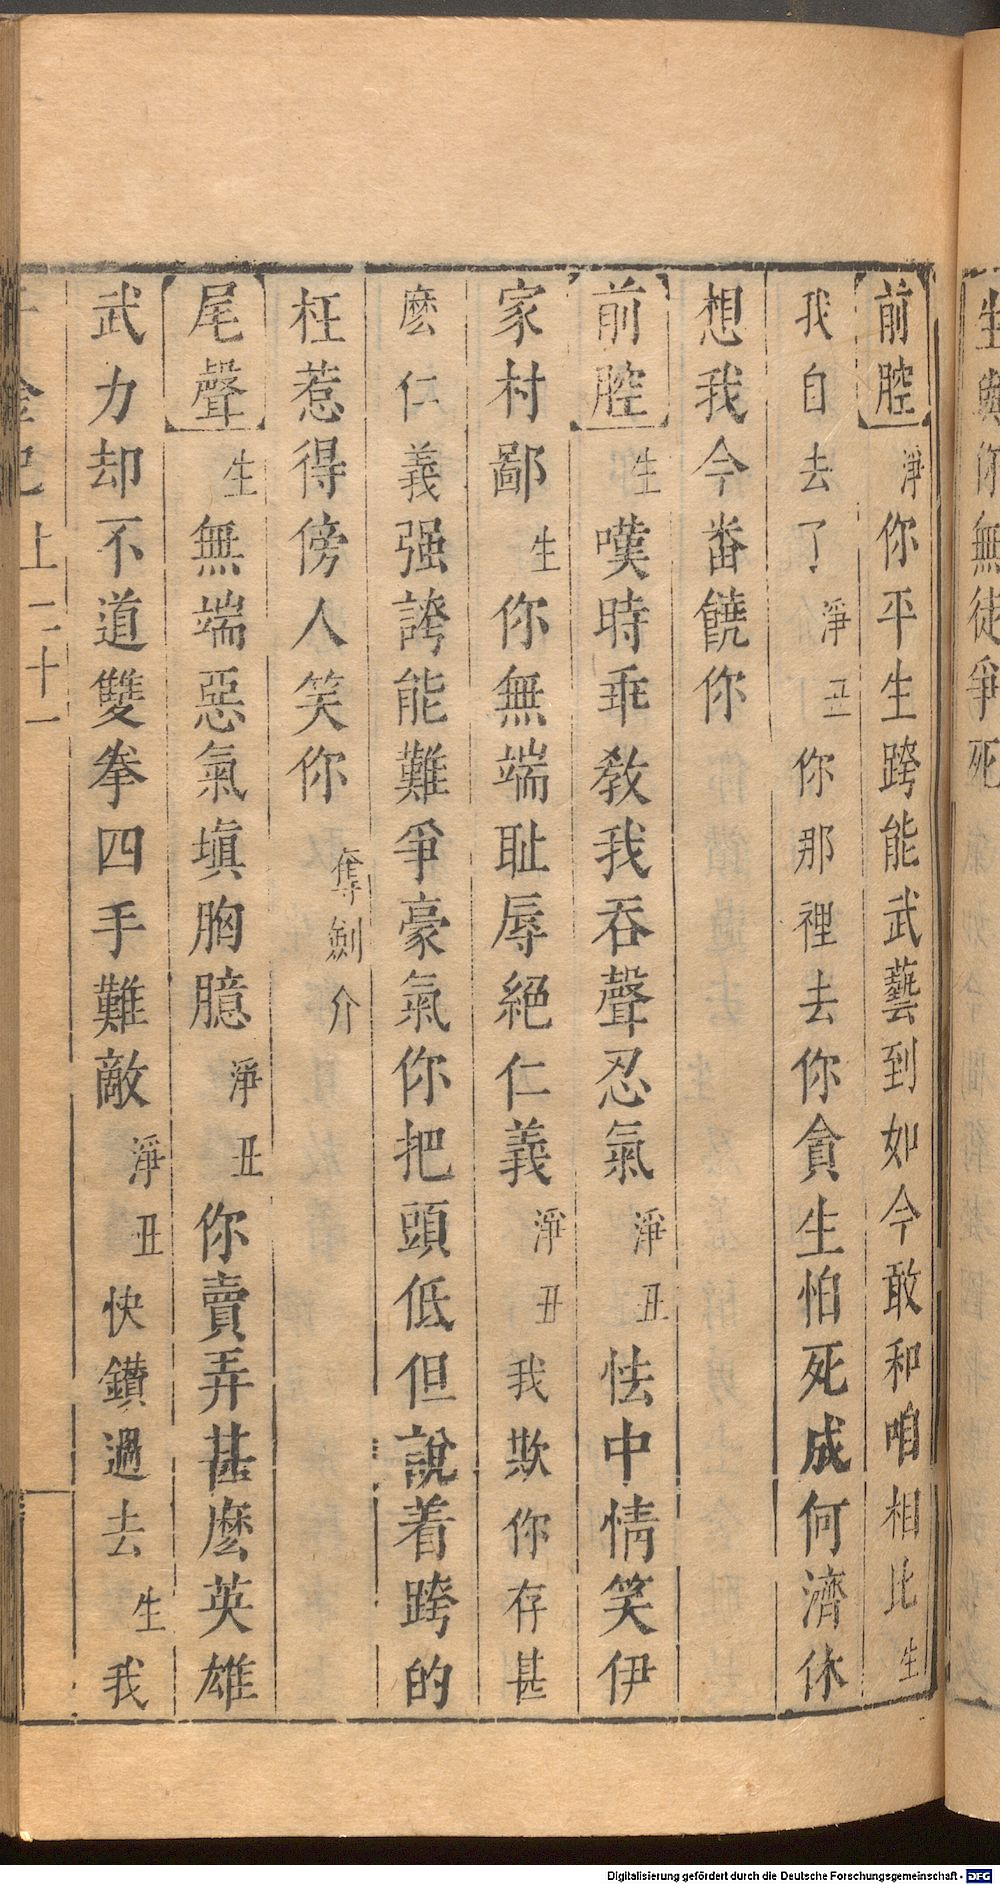 生與你無徒爭死
前腔淨你平生跨能武藝到如今敢和咱相比生
我自去了淨丑你那裡去你貪生怕死成何濟休
想我今番饒你
前腔生嘆時乖教我吞聲忍氣淨丑怯中情笑伊
家村鄙生你無端耻辱絕仁義淨丑我欺你存甚
麽仁義强誇能難爭豪氣你把頭低但說着跨的
枉惹得傍人笑你奪劍介
尾聲生無端惡氣填胸臆淨丑你賣弄甚麽英雄
武力却不道雙拳四手難敵淨丑快鑽過去生我
千金記上二十一
Digitalisierung gefördert durch die Deutsche Forschungsgemeinschaft - DFG